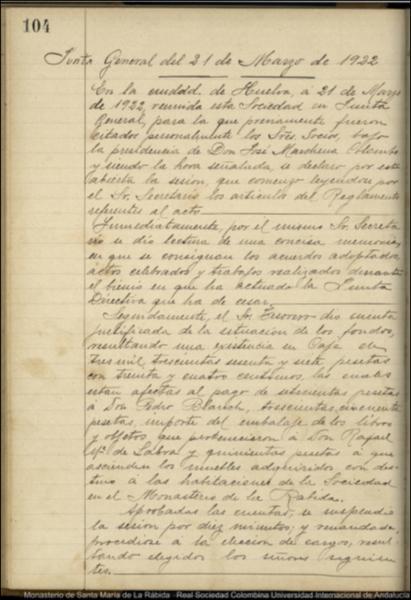 104
Junta General del 21 de Marzo de 1922
En la ciudad de Huelva, á 21 de Marzo
de 1922, reunida esta Sociedad en Junta
General, para la que previamente fueron
citados personalmente los Sres Socios, bajo
la presidencia de Don José Marchena Colombo
y siendo la hora señalada, se declaró por este
abierta la sesión, que comenzó leyendose por
el Sr. Secretario los artículos del Reglamento
referentes al acto.
Inmediatamente, por el mismo Sr. Secreta
rio se dió lectura de una concisa memoria,
en que se consignan los acuerdos adoptados,
actos celebrados y trabajos realizados durante
el bienio en que ha actuado la Junta
Directiva que ha de cesar.
Seguidamente, el Sr. Tesorero dió cuenta
justificada de la situación de los fondos,
resultando una existencia en Caja de
tres mil trescientas sesenta y siete pesetas
con treinta y cuatro centimos, las cuales
están afectas al pago de setecientas pesetas
á Don Pedro Blanch, trescientas cincuenta
pesetas, importe del embalaje de los libros
y objetos que pertenecieron á Don Rafael
Mª de Labra y quinientas pesetas á que
ascienden los muebles adquiridos con des-
tino á las habitaciones de la Sociedad
en el Monasterio de la Rabida.
Aprobadas las cuentas, se suspendió
la sesión por diez minutos; y reanudada,
procedióse á la elección de cargos, resul-
tando elegidos los señores siguien-
tes.
Monasterio de Santa María de La Rábida · Real Sociedad Colombina Universidad Internacional de Andalucía